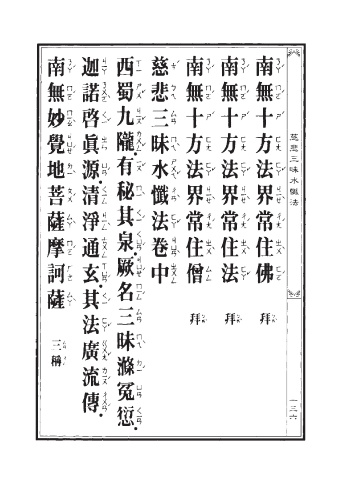 慈悲三昧水懺法
一三六
南無十方法界常住佛 拜
南無十方法界常住法 拜
南無十方法界常住僧 拜
慈悲三昧水懺法卷中
西蜀九隴。有秘其泉。厥名三昧滌冤愆。
迦諾啓眞源。清淨通玄。其法廣流傳。
南無妙覺地菩薩摩訶薩 三稱